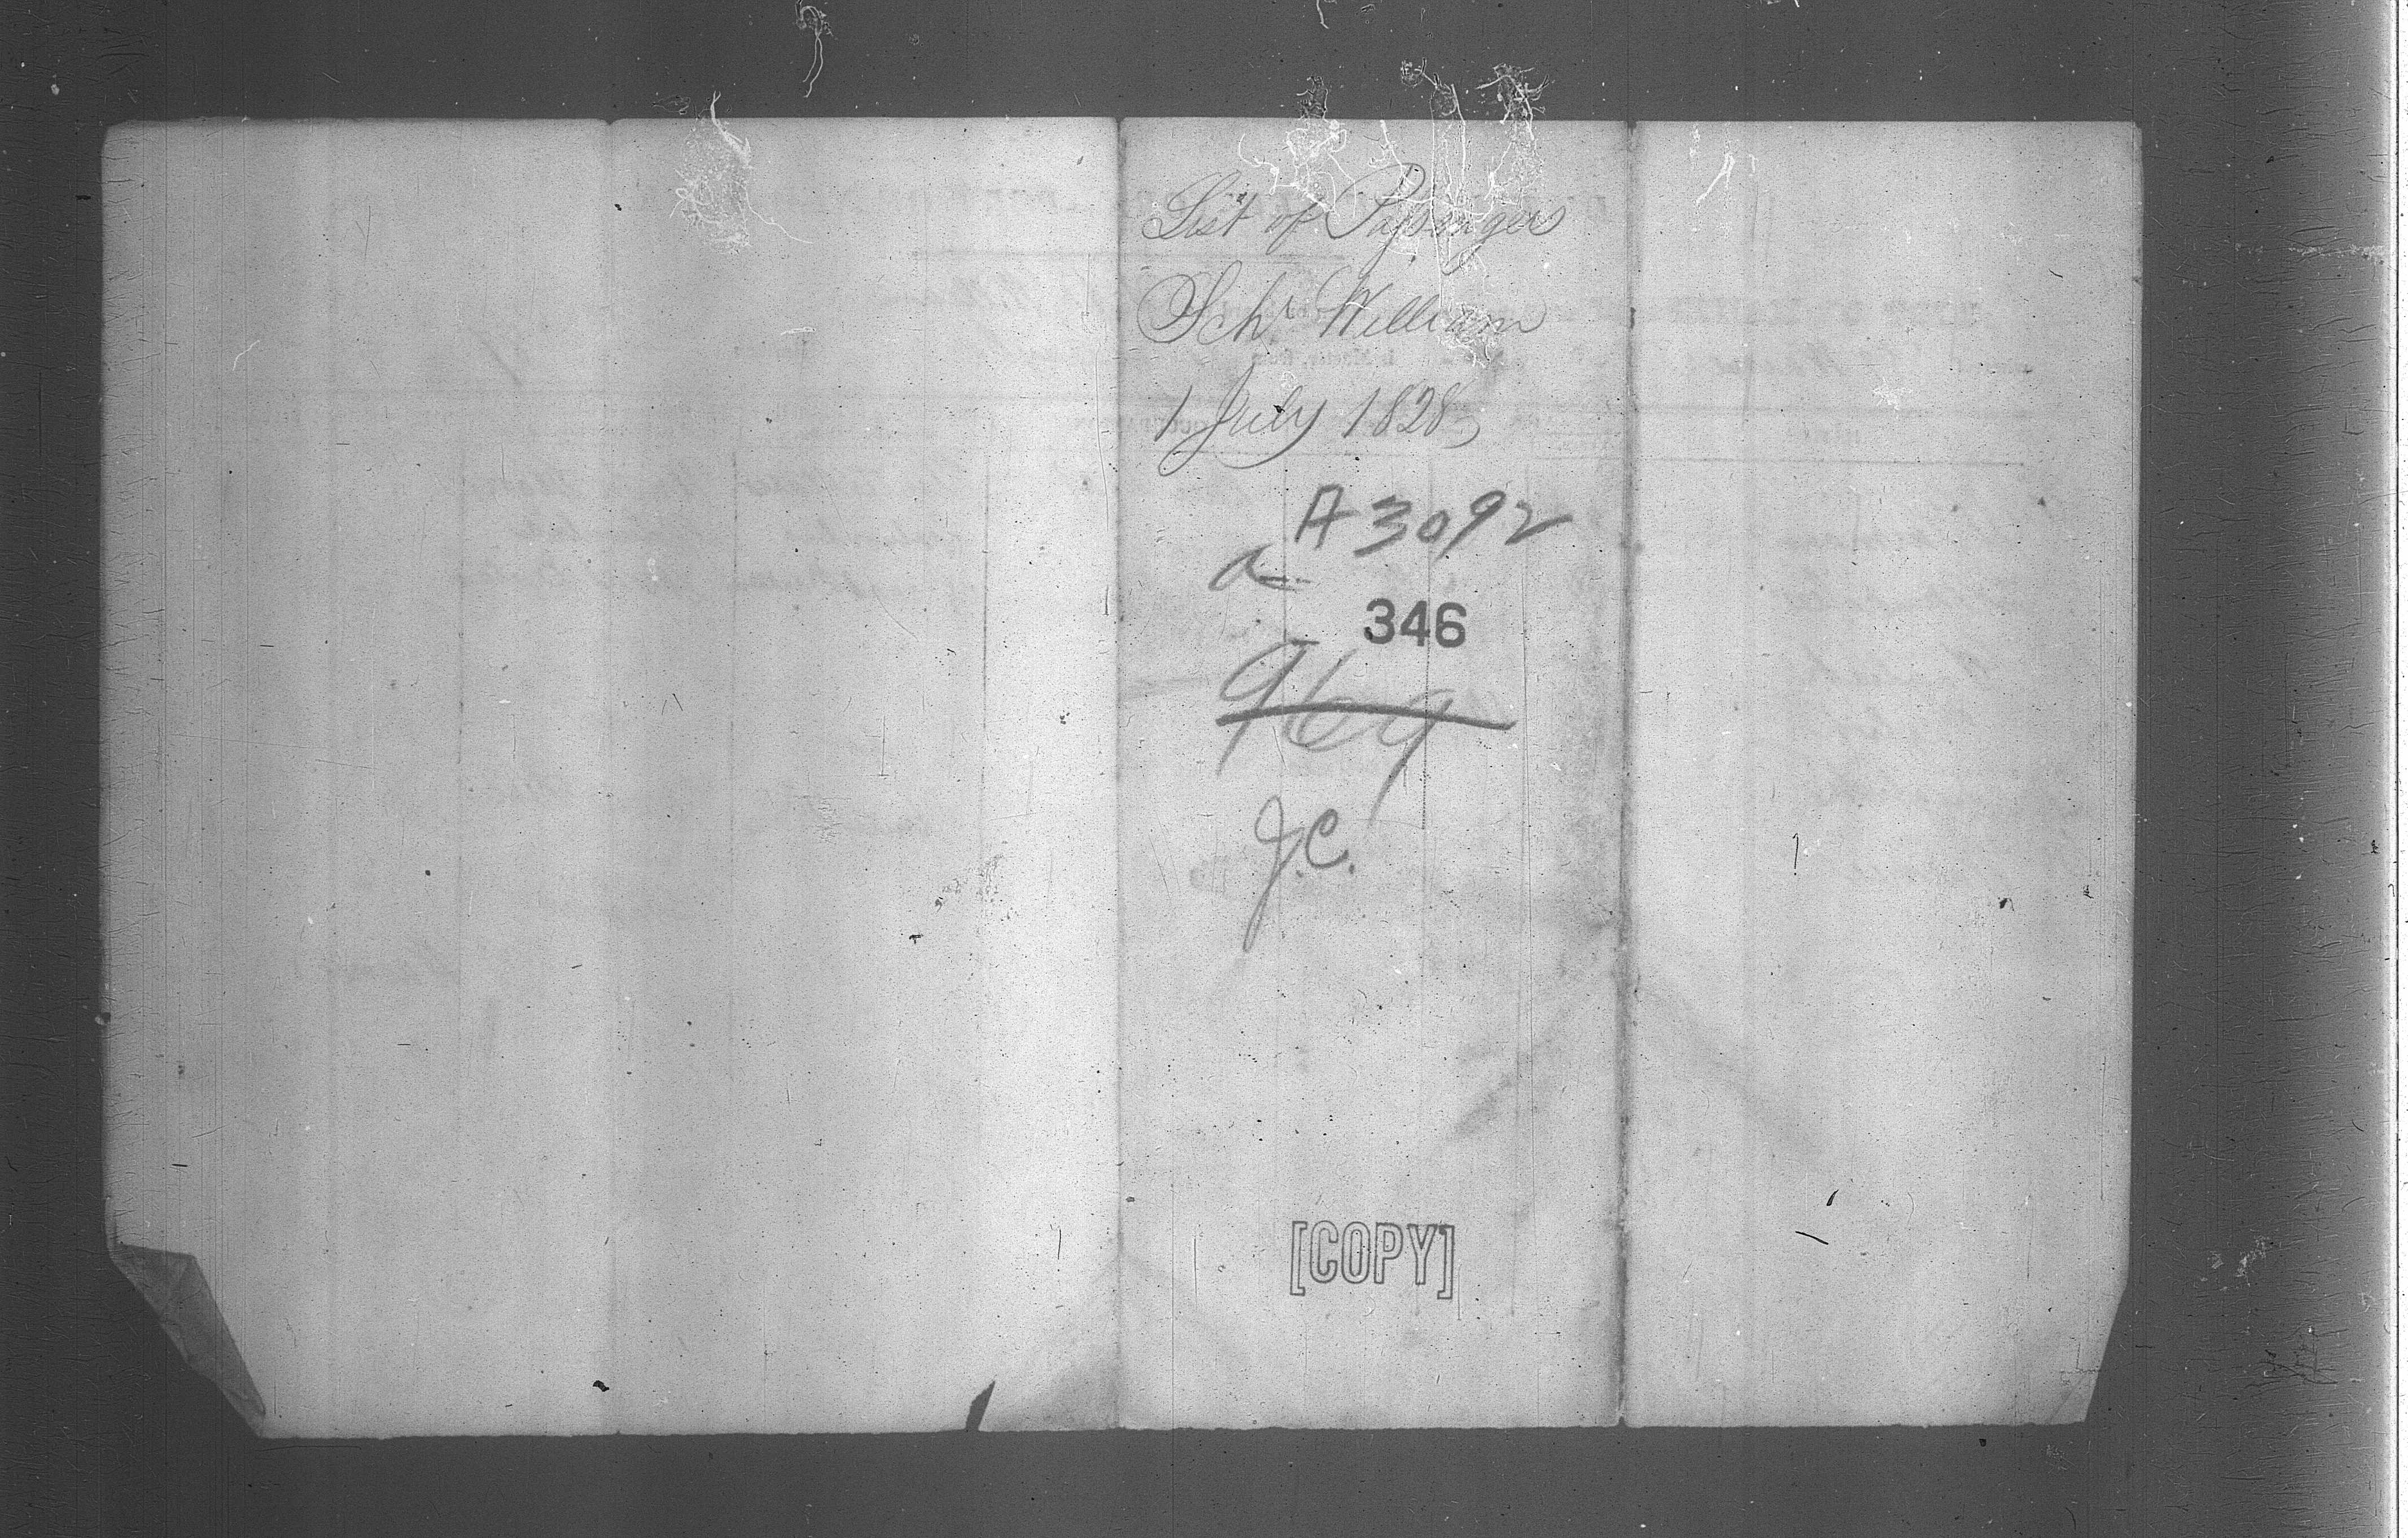 List of Passengers
Schr William
1 July 1828
A 3092
a
346
969
J.C.
[COPY]